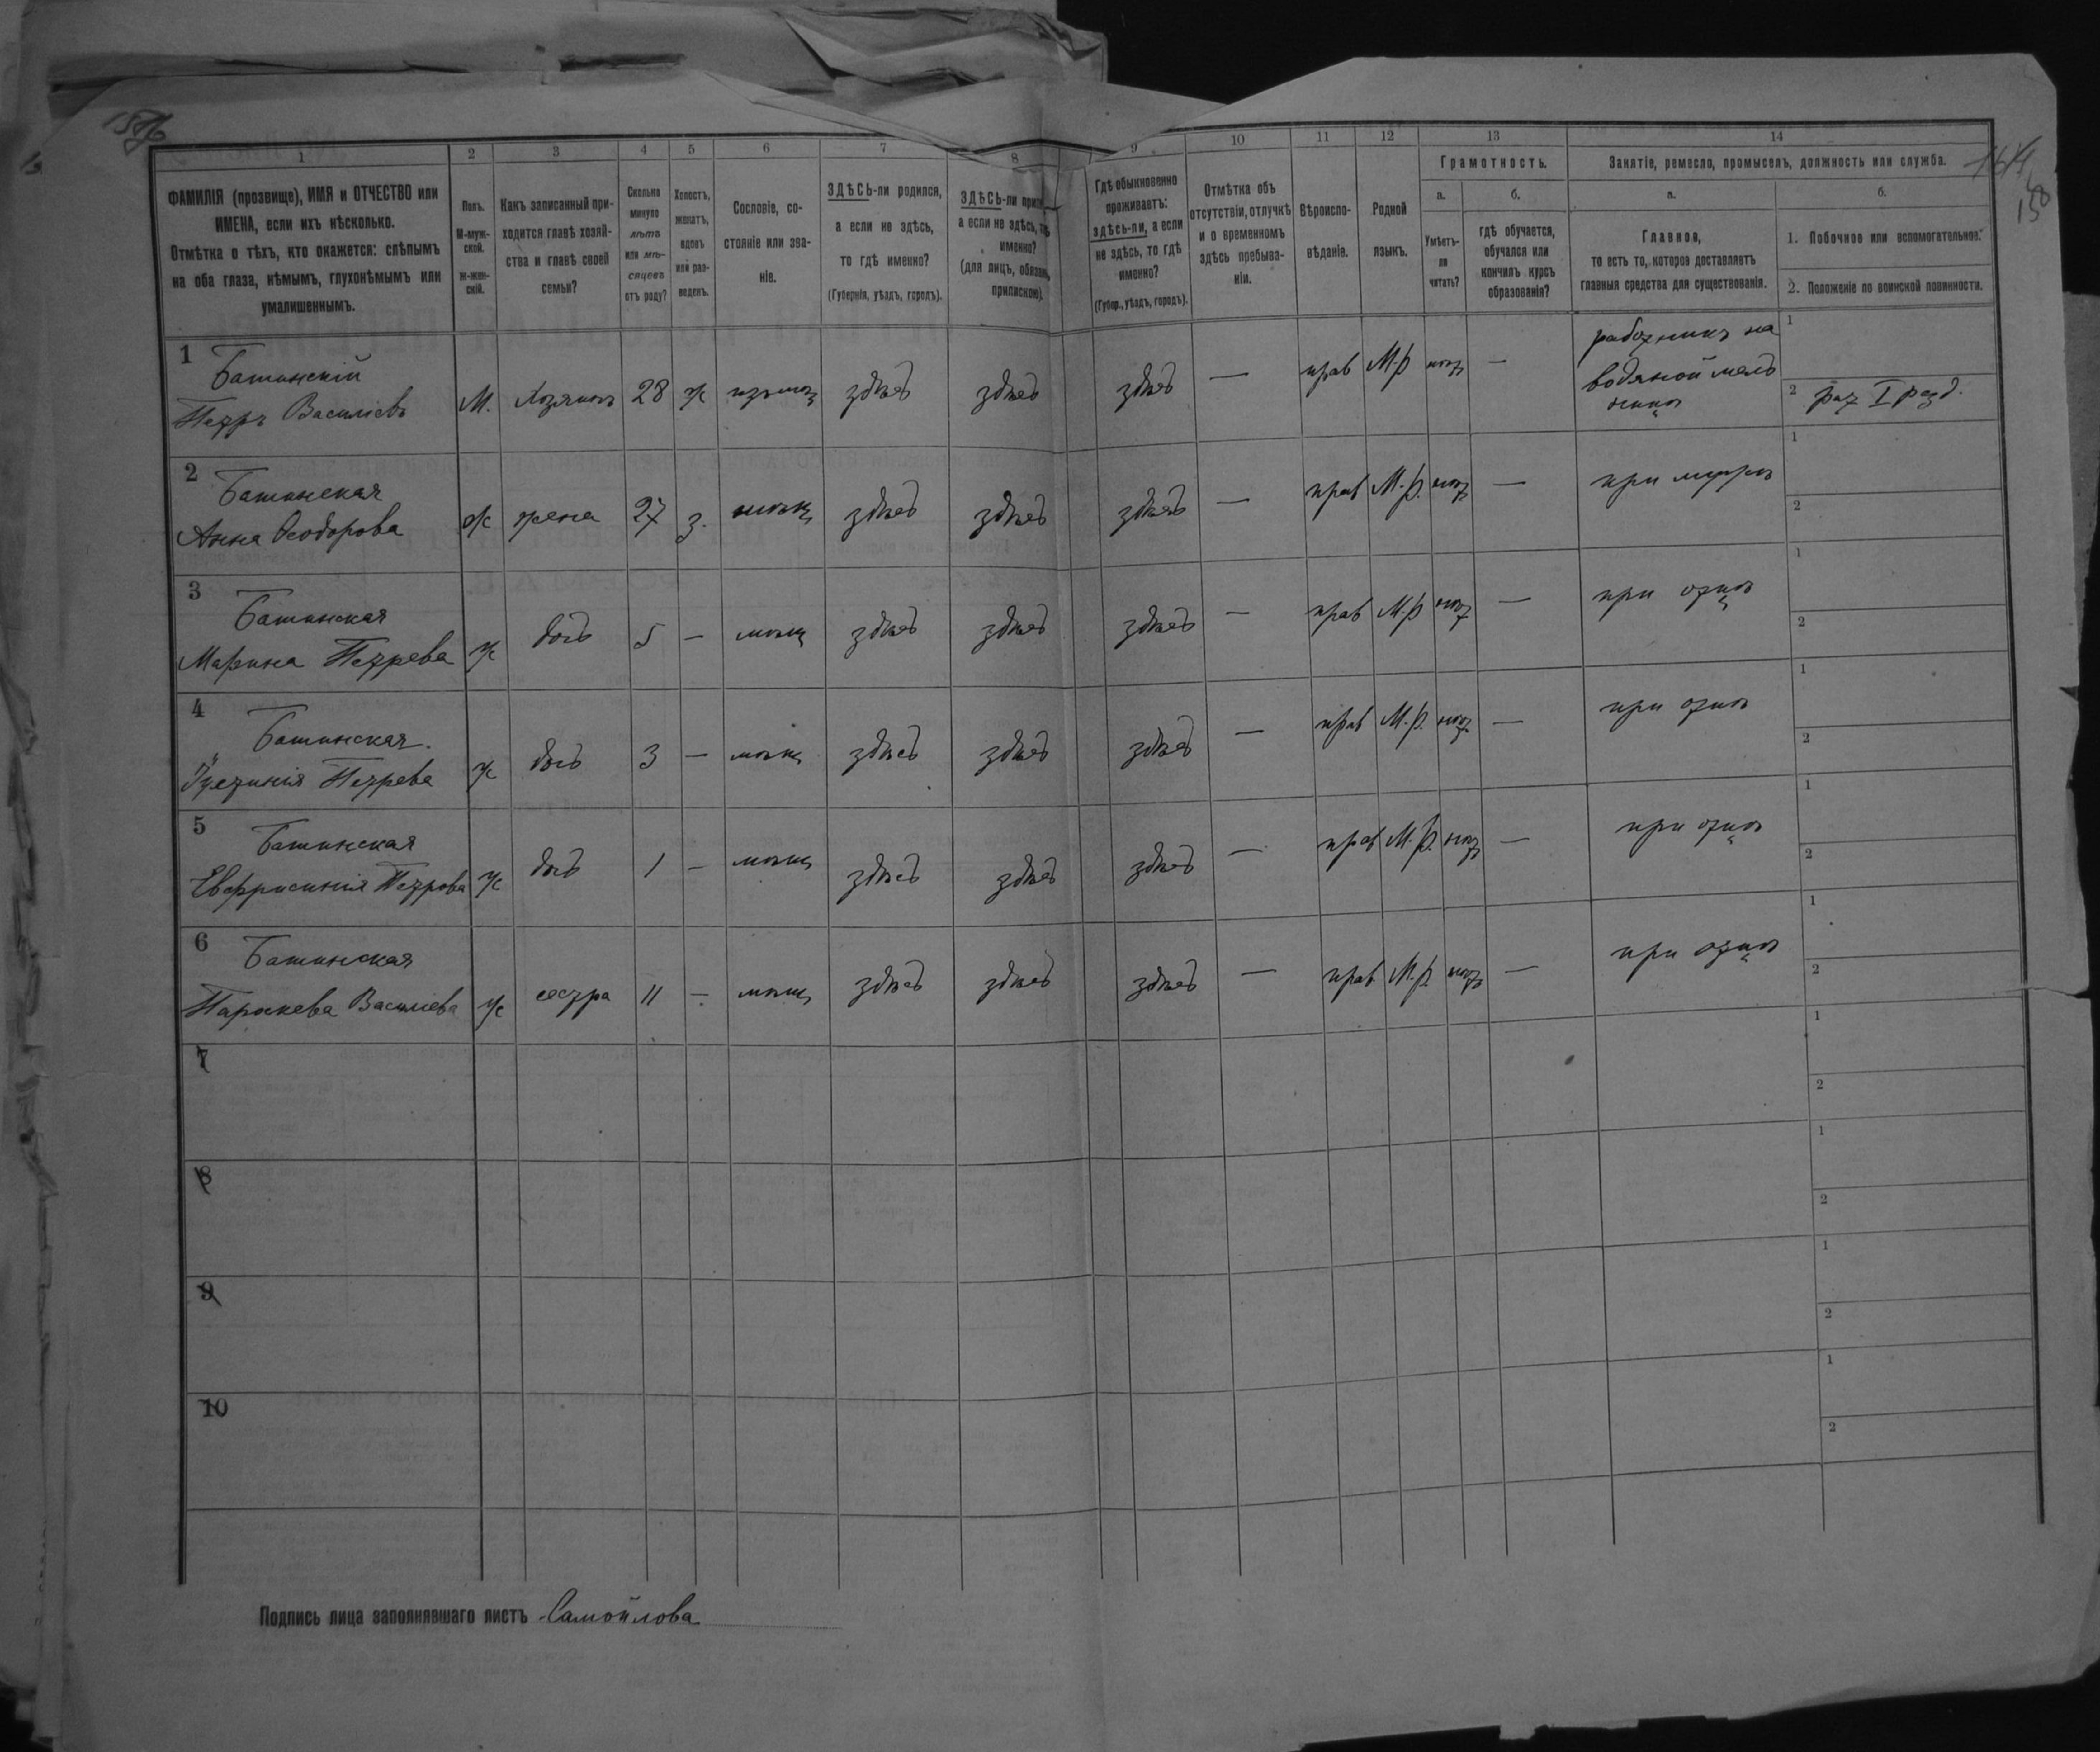 1 2 3 4 5 6 7 8 9 10 11 12 13 14
ФАМИЛІЯ (прозвище), ИМЯ и ОТЧЕСТВО или
ИМЕНА, если ихъ нѣсколько.
Отмѣтка о тѣхъ, кто окажется: слѣпымъ
на оба глаза, нѣмымъ, глухонѣмымъ или
умалишеннымъ.
Полъ.
М-муж-
ской.
Ж-жен-
скій.
Какъ записанный при-
ходится главѣ хозяй-
ства и главѣ своей
семьи?
Сколько
минуло
лѣтъ
или мѣ-
сяцевъ
отъ роду?
Холостъ,
женатъ,
вдовъ
или раз-
веденъ.
Сословіе, со-
стояніе или зва-
ніе.
ЗДѢСЬ-ли родился,
а если не здѣсь,
то гдѣ именно?
(Губернія, уѣздъ, городъ).
ЗДѢСЬ-ли
а если не здѣсь,
именно?
(для лицъ,
припискою).
Гдѣ обыкновенно
проживаетъ:
здѣсь-ли, а если
не здѣсь, то гдѣ
именно?
(Губер., уѣздъ, городъ).
Отмѣтка объ
отсутствіи, отлучкѣ
и о временномъ
здѣсь пребыва-
ніи.
Вѣроиспо-
вѣданіе.
Родной
языкъ.
Грамотность.
а.
Умѣетъ-
ли
читать?
б.
гдѣ обучается,
обучался или
кончилъ курсъ
образованія?
Занятіе, ремесло, промыселъ, должность или служба.
а.
Главное,
то есть то, которое доставляетъ
главныя средства для существованія.
б.
1. Побочное или вспомогательное.
2. Положеніе по воинской повинности.
1 Башинскій
Петръ Василіевъ М. Хозяинъ 28 ж здѣсь здѣсь здѣсь — прав М.р нѣт —
работникъ на
водяной мель
ницѣ
1
2 рат I разд.
2 Башинская
Анна Ѳеодорова ж жена 27 з. мѣщ здѣсь здѣсь здѣсь — прав М.р. нѣт — при мужѣ
1
2
3 Башинская
Марина Петрева ж дочь 5 — мѣщ здѣсь здѣсь здѣсь — прав М.р нѣт — при отцѣ
1
2
4 Башинская.
Іустинія Петрева ж дочь 3 — мѣщ здѣсь здѣсь здѣсь — прав М.р. нѣт — при отцѣ
1
2
5 Башинская
Евфросинія Петрова ж дочь 1 — мѣщ здѣсь здѣсь здѣсь — прав М.р. нѣт — при отцѣ
1
2
6 Башинская
Параскева Василіева ж сестра 11 — мѣщ здѣсь здѣсь здѣсь — прав М.р нѣт — при отцѣ
1
2
7
1
2
8
1
2
9
1
2
10
1
2
Подпись лица заполнявшаго листъ Самойлова